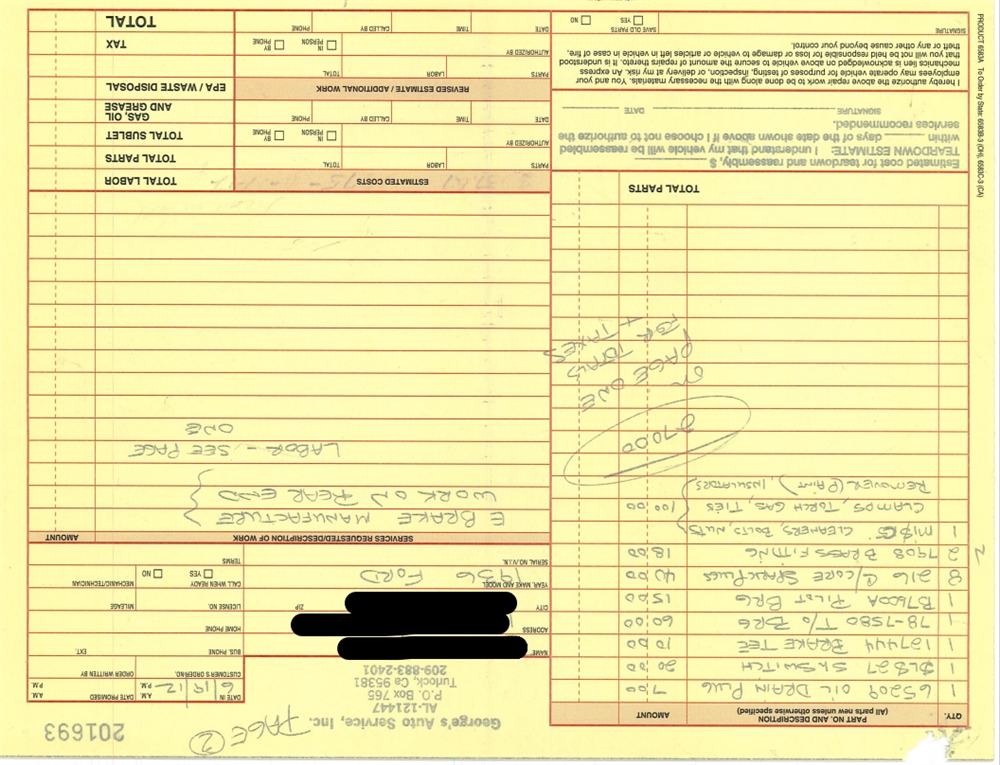 201693
PAGE (2)
George's Auto Service, Inc.
AL-121447
P.O. Box 765
Turlock, Ca 95381
209-883-2401
QTY. PART NO. AND DESCRIPTION (All parts new unless otherwise specified) AMOUNT
1 65209 OIL DRAIN PLUG 7.00
1 SLS27 SL SWITCH 20.00
1 127444 BRAKE TEE 10.00
1 78-7580 T/O BRG 60.00
1 B7600A PILOT BRG 15.00
8 216 C/CORE SPARK PLUGS 40.00
2 7908 BRASS FITTING 18.00
1 MISC CLEANERS, BOLTS, NUTS
CLAMPS, TORCH GAS, TIES 100.00
REMOVER (PAINT), INSULATORS
270.00
ON
PAGE ONE
FOR TOTALS
+ TAXES
TOTAL PARTS
Estimated cost for teardown and reassembly, $
TEARDOWN ESTIMATE I understand that my vehicle will be reassembled
within days of the date shown above if I choose not to authorize the
services recommended.
SIGNATURE DATE
I hereby authorize the above repair work to be done along with the necessary materials. You and your
employees may operate vehicle for purposes of testing, inspection, or delivery at my risk. An express
mechanics lien is acknowledged on above vehicle to secure the amount of repairs thereto. It is understood
that you will not be held responsible for loss or damage to vehicle or articles left in vehicle in case of fire,
theft or any other cause beyond your control.
SIGNATURE SAVE OLD PARTS YES NO
PRODUCT 6583A To Order by State: 6583B-3 (OH), 6583C-3 (CA)
DATE IN 6 19 12 A.M. P.M. DATE PROMISED A.M. P.M.
CUSTOMER'S ORDER NO. ORDER WRITTEN BY
NAME BUS. PHONE EXT.
ADDRESS HOME PHONE
CITY ZIP LICENSE NO. MILEAGE
YEAR, MAKE AND MODEL 1936 FORD CALL WHEN READY YES NO MECHANIC/TECHNICIAN
SERIAL NO./V.I.N. TERMS
SERVICES REQUESTED/DESCRIPTION OF WORK AMOUNT
E BRAKE MANUFACTURE
WORK ON REAR END
LABOR - SEE PAGE
ONE
ESTIMATED COSTS TOTAL LABOR
PARTS LABOR TOTAL TOTAL PARTS
AUTHORIZED BY IN PERSON BY PHONE TOTAL SUBLET
DATE TIME CALLED BY PHONE GAS, OIL AND GREASE
REVISED ESTIMATE / ADDITIONAL WORK EPA / WASTE DISPOSAL
PARTS LABOR TOTAL
AUTHORIZED BY IN PERSON BY PHONE TAX
DATE TIME CALLED BY PHONE TOTAL